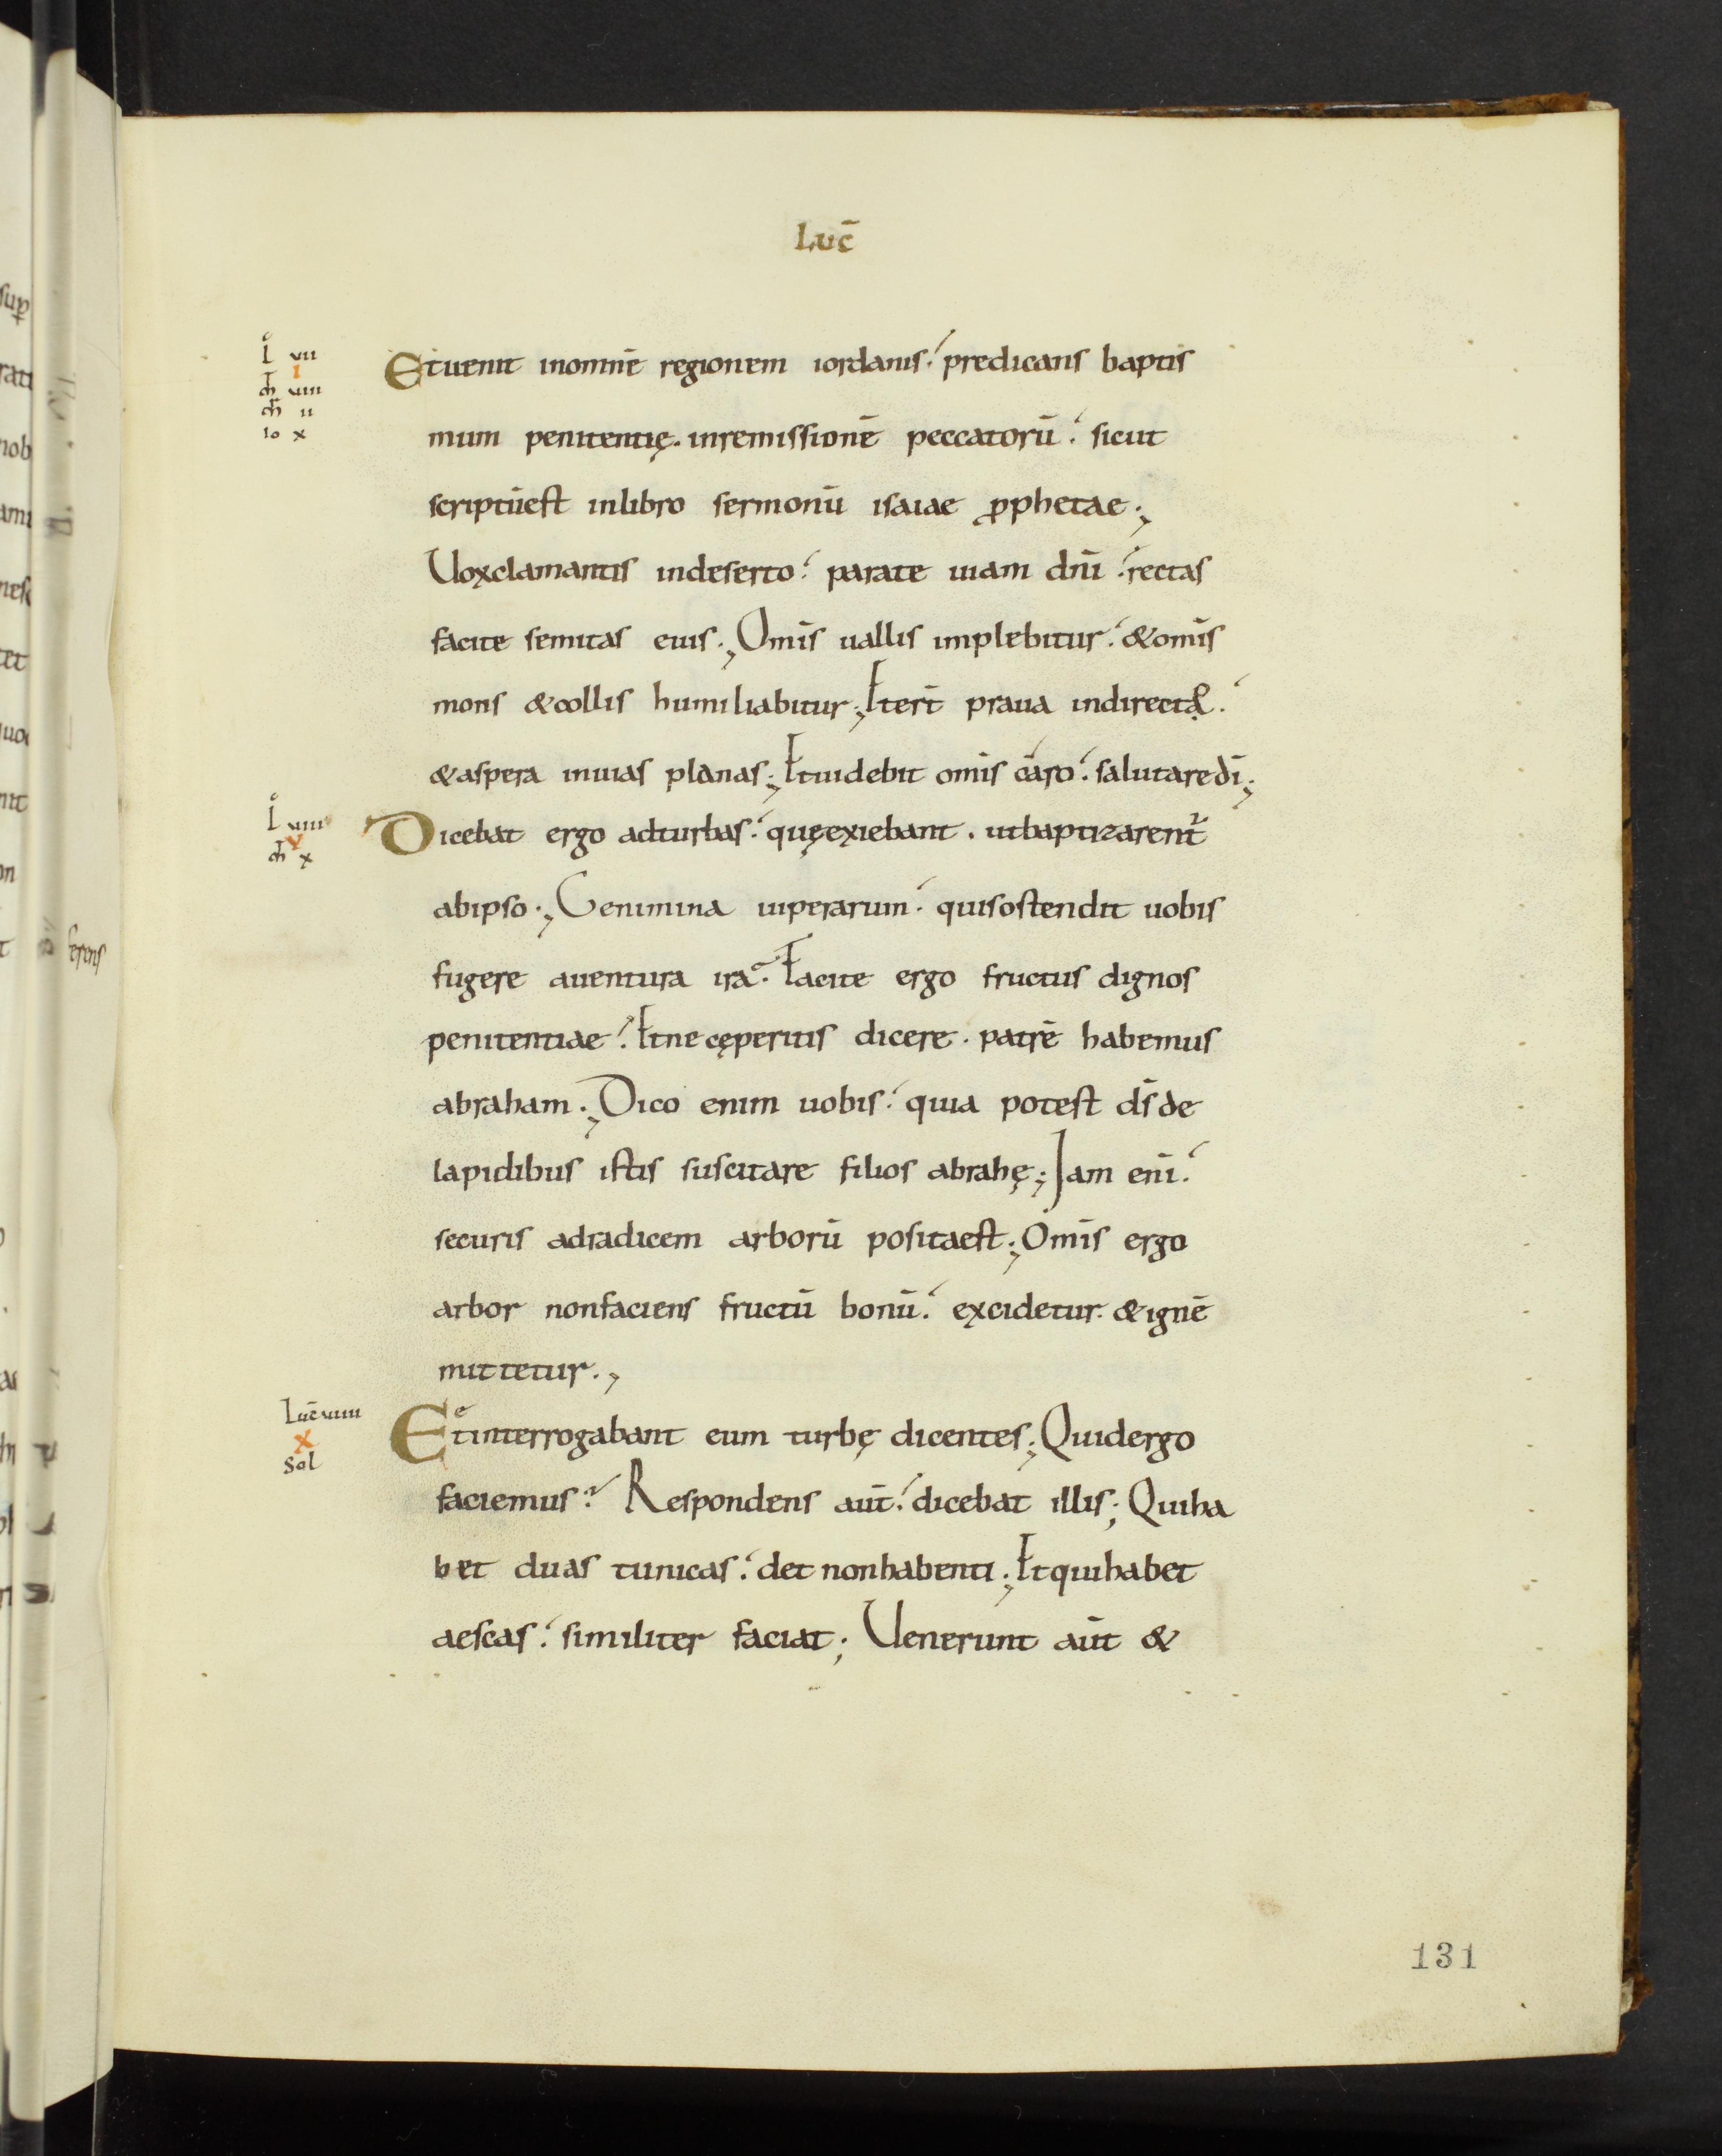 Luc̄
L vii
i
m̄ viii
m̄ ii
io x
Et uenit inomnē regionem iordanis. predicans baptis
mum penitentię. inremissionē peccatorū. sicut
scriptūest inlibro sermonū isaiae ꝓphetae.,
Uoxclamantis indeserto. parate uiam dnī. rectas
facite semitas eius., Omīs uallis implebitur. &omīs
mons &collis humiliabitur; Et erī praua indirecta.
&aspera inuias planas; Et uidebit omīs caro. salutare dī;
L viiii
v
m̄ x
Dicebat ergo adturbas. quęexiebant. utbaptizarent̄
abipso., Genimina uiperarum. quisostendit uobis
fugere auentura irā. Facite ergo fructus dignos
penitentiae. Et ne cęperitis dicere. patrē habemus
abraham., Dico enim uobis. quia potest dīs de
lapidibus istis suscitare filios abrahę; Iam enī.
securis adradicem arborū positaest; Omīs ergo
arbor nonfaciens fructū bonū. excidetur. &ignē
mittetur.,
Luc̄ viiii
x
Sol
Et interrogabant eum turbę dicentes; Quidergo
faciemus? Respondens aut̄. dicebat illis; Quiha
bet duas tunicas. det nonhabenti; Et quihabet
aescas. similiter faciat; Uenerunt aut̄ &
ferens
131